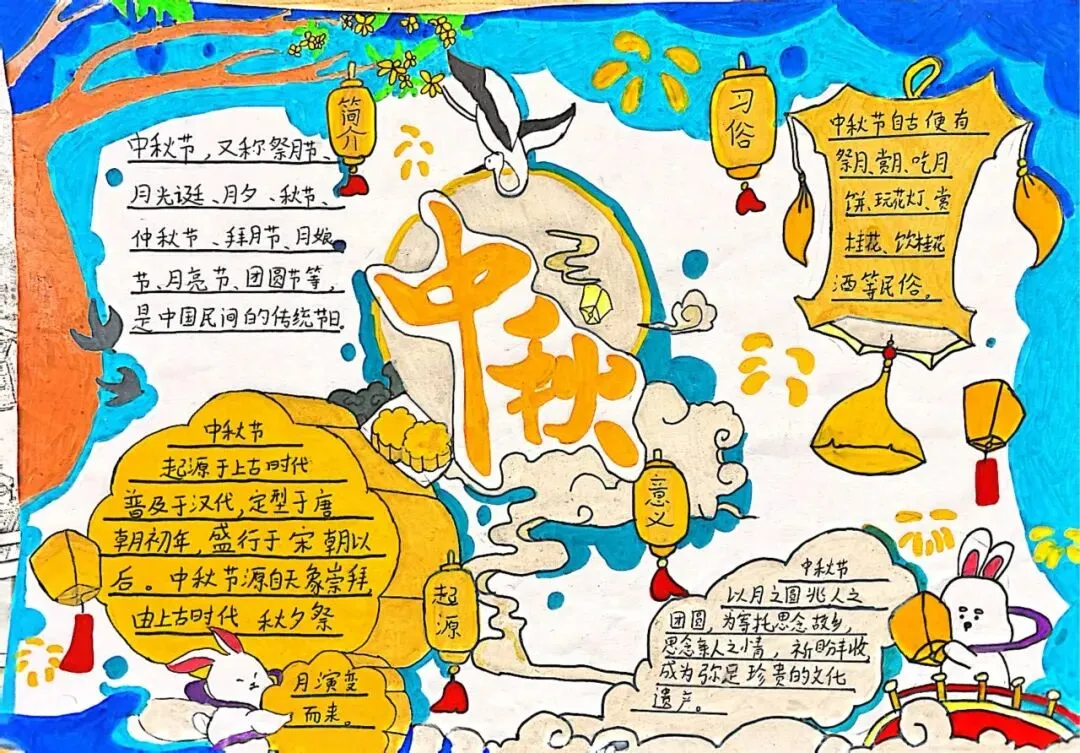 简介
中秋节,又称祭月节、
月光诞、月夕、秋节、
仲秋节、拜月节、月娘
节、月亮节、团圆节等,
是中国民间的传统节日.
中秋
习俗
中秋节自古便有
祭月、赏月、吃月
饼、玩花灯、赏
桂花、饮桂花
酒等民俗。
起源
中秋节
起源于上古时代
普及于汉代,定型于唐
朝初年,盛行于宋朝以
后。中秋节源自天象崇拜,
由上古时代 秋夕祭
月演变
而来。
意义
中秋节
以月之圆兆人之
团圆,为寄托思念故乡,
思念亲人之情,祈盼丰收,
成为弥足珍贵的文化
遗产。